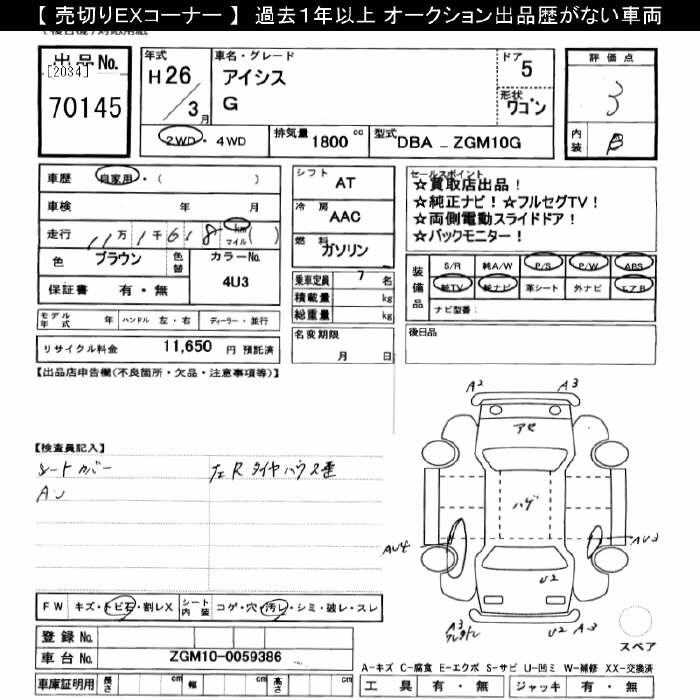 【 売切りEXコーナー 】 過去1年以上 オークション出品歴がない車両
出品No.
[2034]
70145
年式
H26
3月
車名・グレード
アイシス
G
ドア
5
形状
ワゴン
評価点
3
内装
B
2WD・4WD
排気量 1800 cc
型式 DBA - ZGM10G
車歴 自家用・( )
車検 年 月
走行 11万1千618 km マイル ( )
色 ブラウン 色替
カラーNo. 4U3
保証書 有・無
シフト AT
冷房 AAC
燃料 ガソリン
乗車定員 7 名
積載量 kg
総重量 kg
セールスポイント
☆買取店出品!
☆純正ナビ! ☆フルセグTV!
☆両側電動スライドドア!
☆バックモニター!
装備品
S/R 純A/W P/S P/W ABS
純TV 純ナビ 革シート 外ナビ エアB
ナビ型番:
モデル年式 年 ハンドル 左・右 ディーラー・並行
リサイクル料金 11,650 円 預託済
名変期限
月 日
後日品
【出品店申告欄(不良箇所・欠品・注意事項等)】
【検査員記入】
シートカバー
左Rタイヤハウス歪
A2 A3
アセ
ハゲ
AU4
AU3
U2
A3
A3
スペア
FW キズ・トビ石・割レX シート内装 コゲ・穴・汚レ・シミ・破レ・スレ
登録No.
車台No. ZGM10-0059386
車庫証明用 長さ cm 幅 cm 高さ cm
A-キズ C-腐食 E-エクボ S-サビ U-凹ミ W-補修 XX-交換済
工具 有・無 ジャッキ 有・無